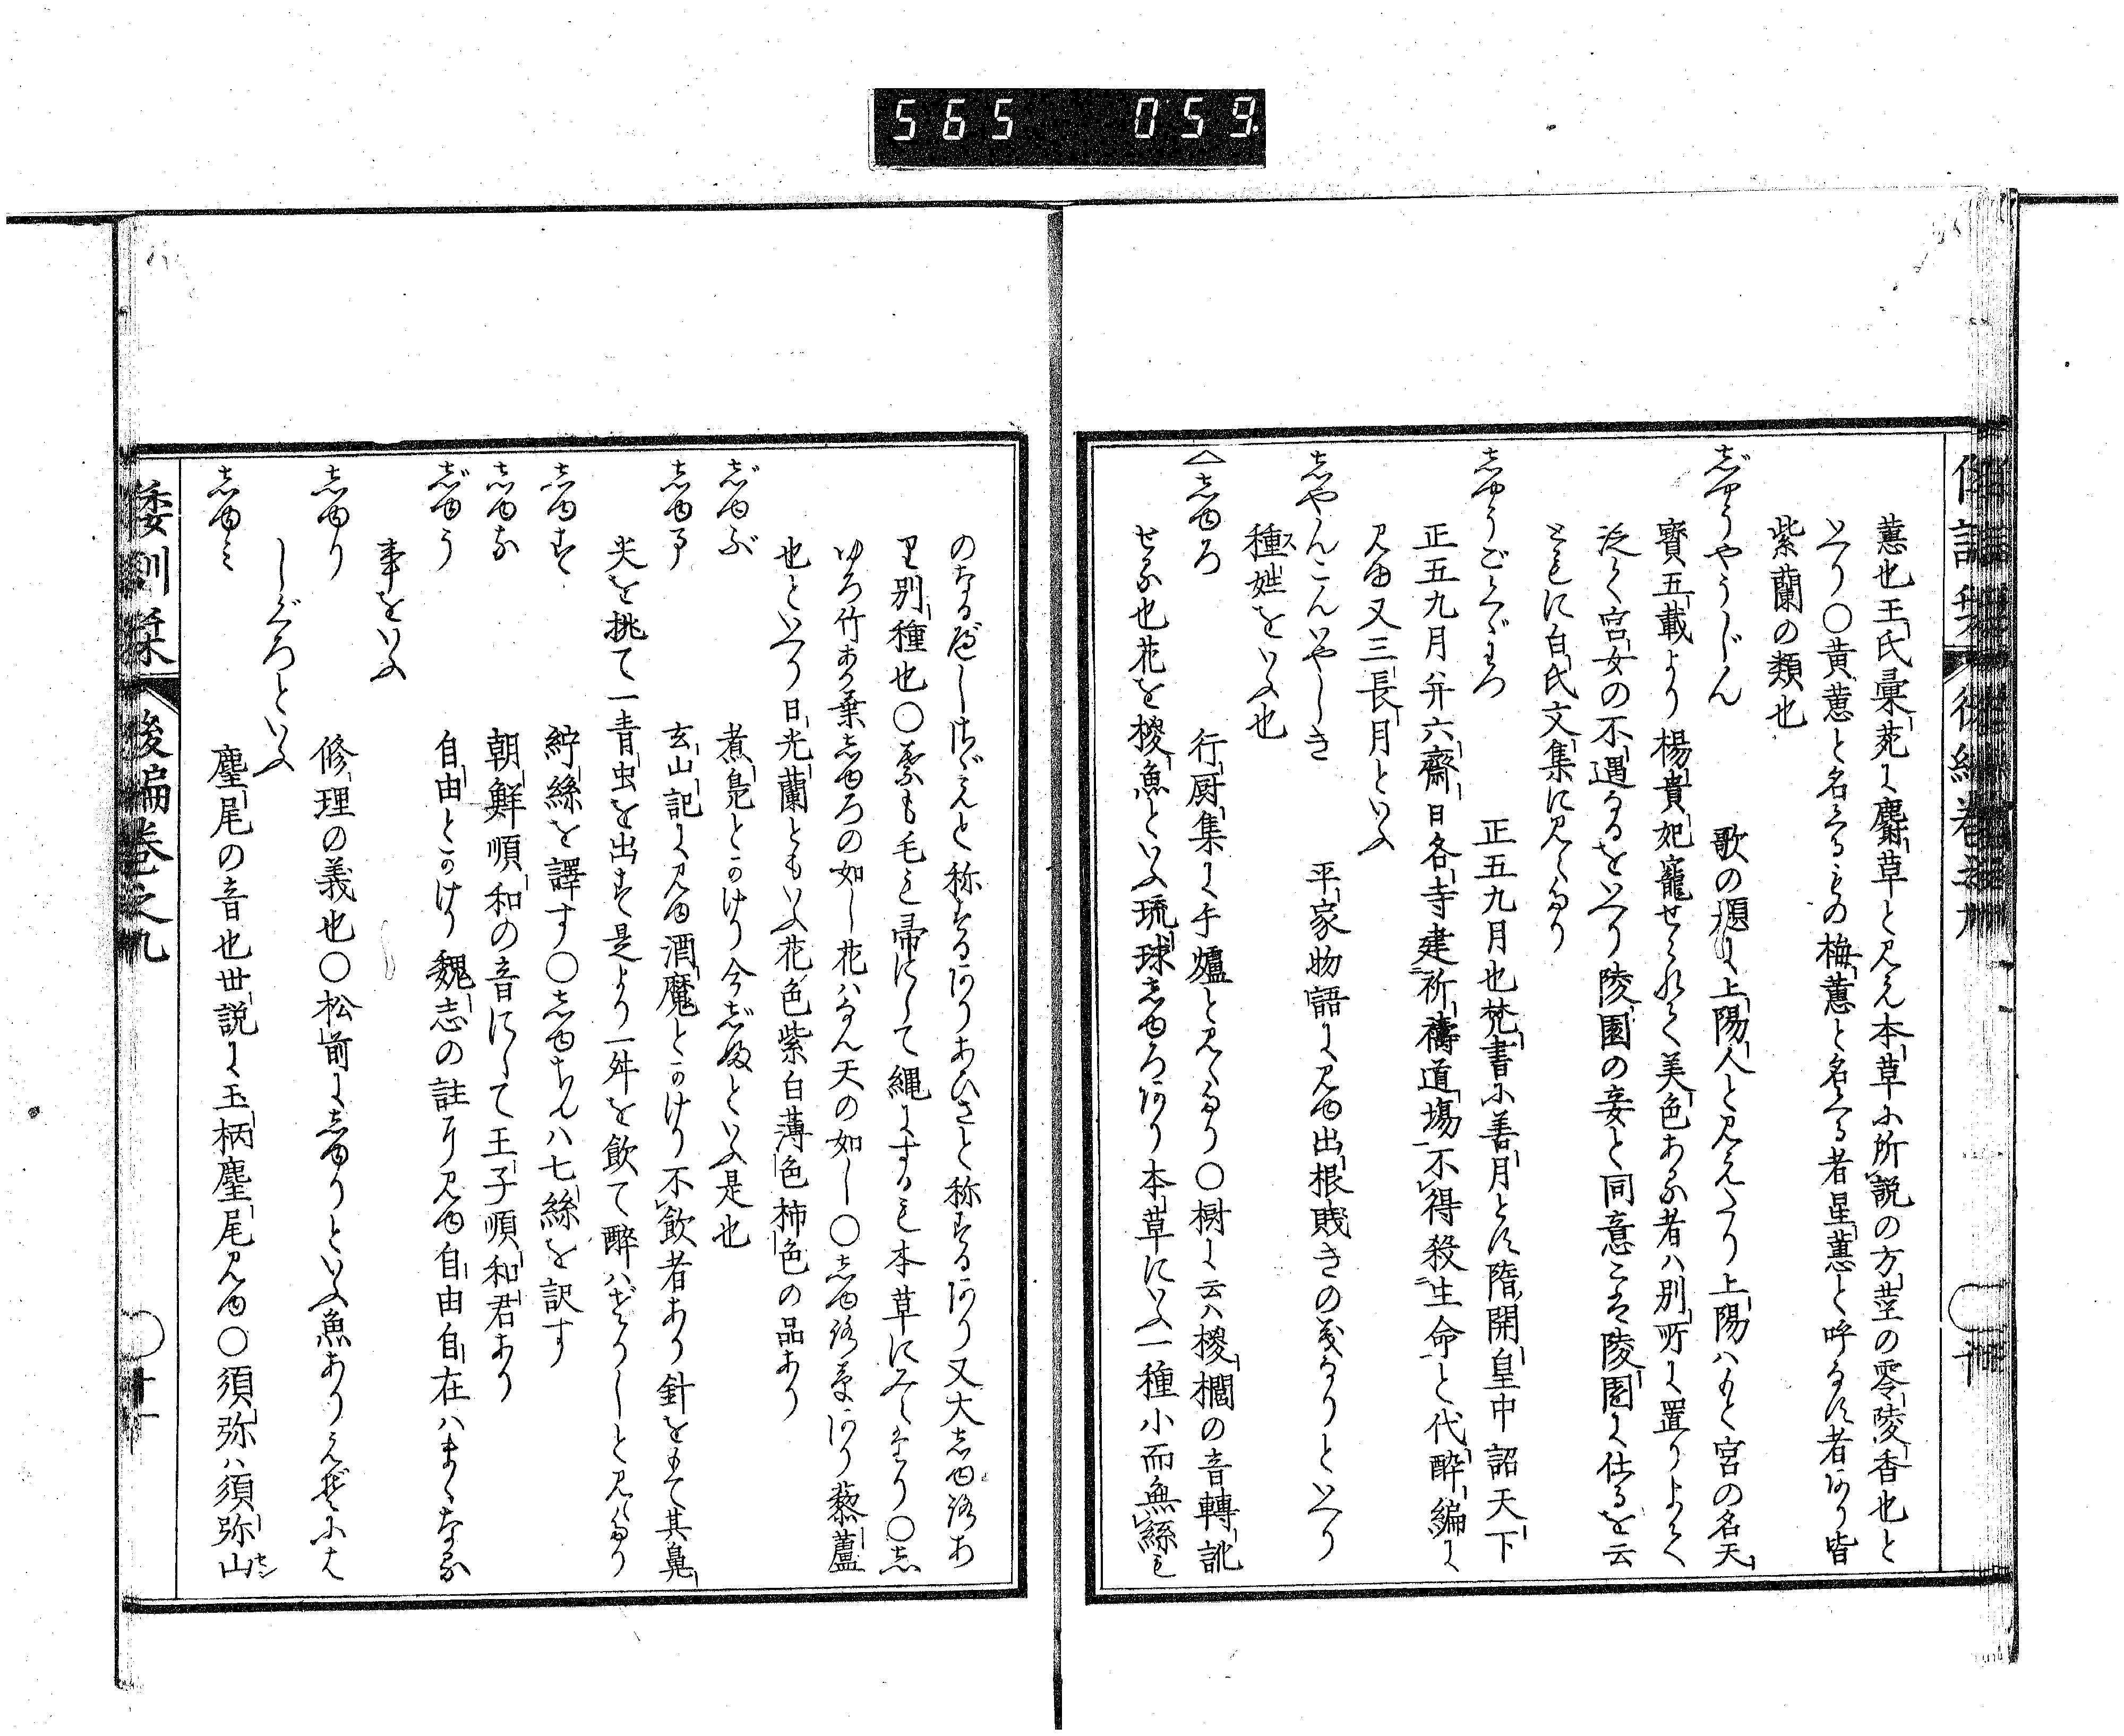 565 059
蕙也王氏彙苑に麝草と見え本草に所説の方莖の零陵香也と
いへり○黄蕙と名くるもの梅蕙と名くる者星蕙と呼なす者あり皆
紫蘭の類也
じやうやうじん 歌の題に上陽人と見えたり上陽はもと宮の名天
寳五載より楊貴妃寵せられて美色ある者ハ別所に置りよて
泛く宮女の不遇なるをいへり陵園の妾と同意こは陵園に仕るを云
ともに白氏文集に見えたり
しやうごくぐわつ 正五九月也梵書に善月とす隋開皇中詔天下
正五九月并六齋日各寺建祈禱道塲不得殺生命と代醉編に
見ゆ又三長月といふ
しやんこんいやしき 平家物語に見ゆ出根賤きの義なりといへり
種姓をいふ也
△しゆろ 行厨集に手爐と見えたり○樹に云ハ椶櫚の音轉訛
せる也花を椶魚といふ琉球しゆろあり本草にいふ一種小而無絲も
のなるべしはぐえと称するありあひさと称するあり又大しゆろあ
り別種也○葉も毛も帚にして縄にするも本草にみえたり○し
ゆろ竹あり葉しゆろの如し花ハなん天の如し○しゆろ草あり藜蘆
也といへり日光蘭ともいふ花色紫白薄色柿色の品あり
じゆぶ 煮鳧とかけり今じぶといふ是也
玄山記に見ゆ酒魔とかけり不飲者あり針をもて其鼻
尖を挑て一青虫を出す是より一舛を飲て醉ハざりしと見えたり
しゆす 紵絲を譯す○しゆちんハ七絲を訳す
しゆな 朝鮮順和の音にて王子順和君あり
じゆう 自由とかけり魏志の註に見ゆ自由自在ハまゝなる
事をいふ
しゆり 修理の義也○松前にしゆりといふ魚ありえぞには
しぐろといふ
しゆミ 麈尾の音也世説に玉柄麈尾見ゆ○須弥ハ須弥山
倭訓栞 後編巻之九 十一